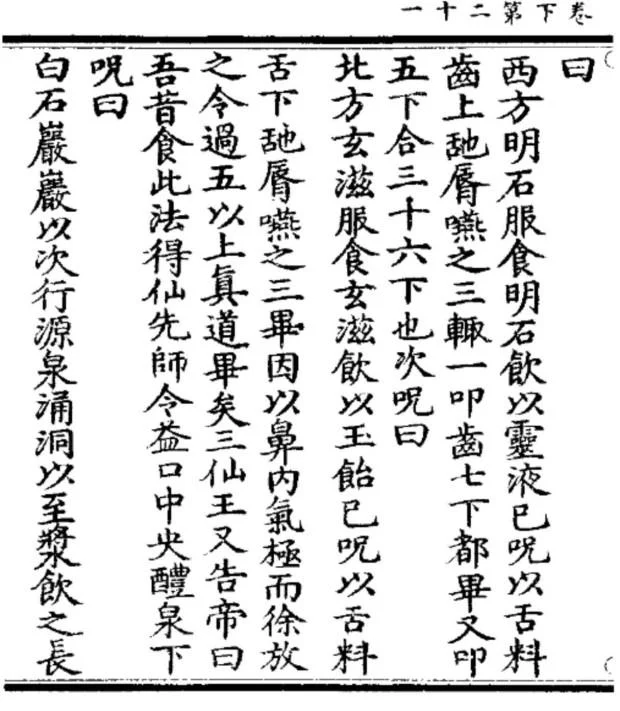 卷下第二十一
曰
西方明石服食明石飲以靈液已呪以舌料
齒上舐脣嚥之三輒一叩齒七下都畢又叩
五下合三十六下也次呪曰
北方玄滋服食玄滋飲以玉飴已呪以舌料
舌下舐脣嚥之三畢因以鼻内氣極而徐放
之令過五以上眞道畢矣三仙王又告帝曰
吾昔食此法得仙先師令益口中央醴泉下
呪曰
白石巖巖以次行源泉涌洞以至漿飲之長